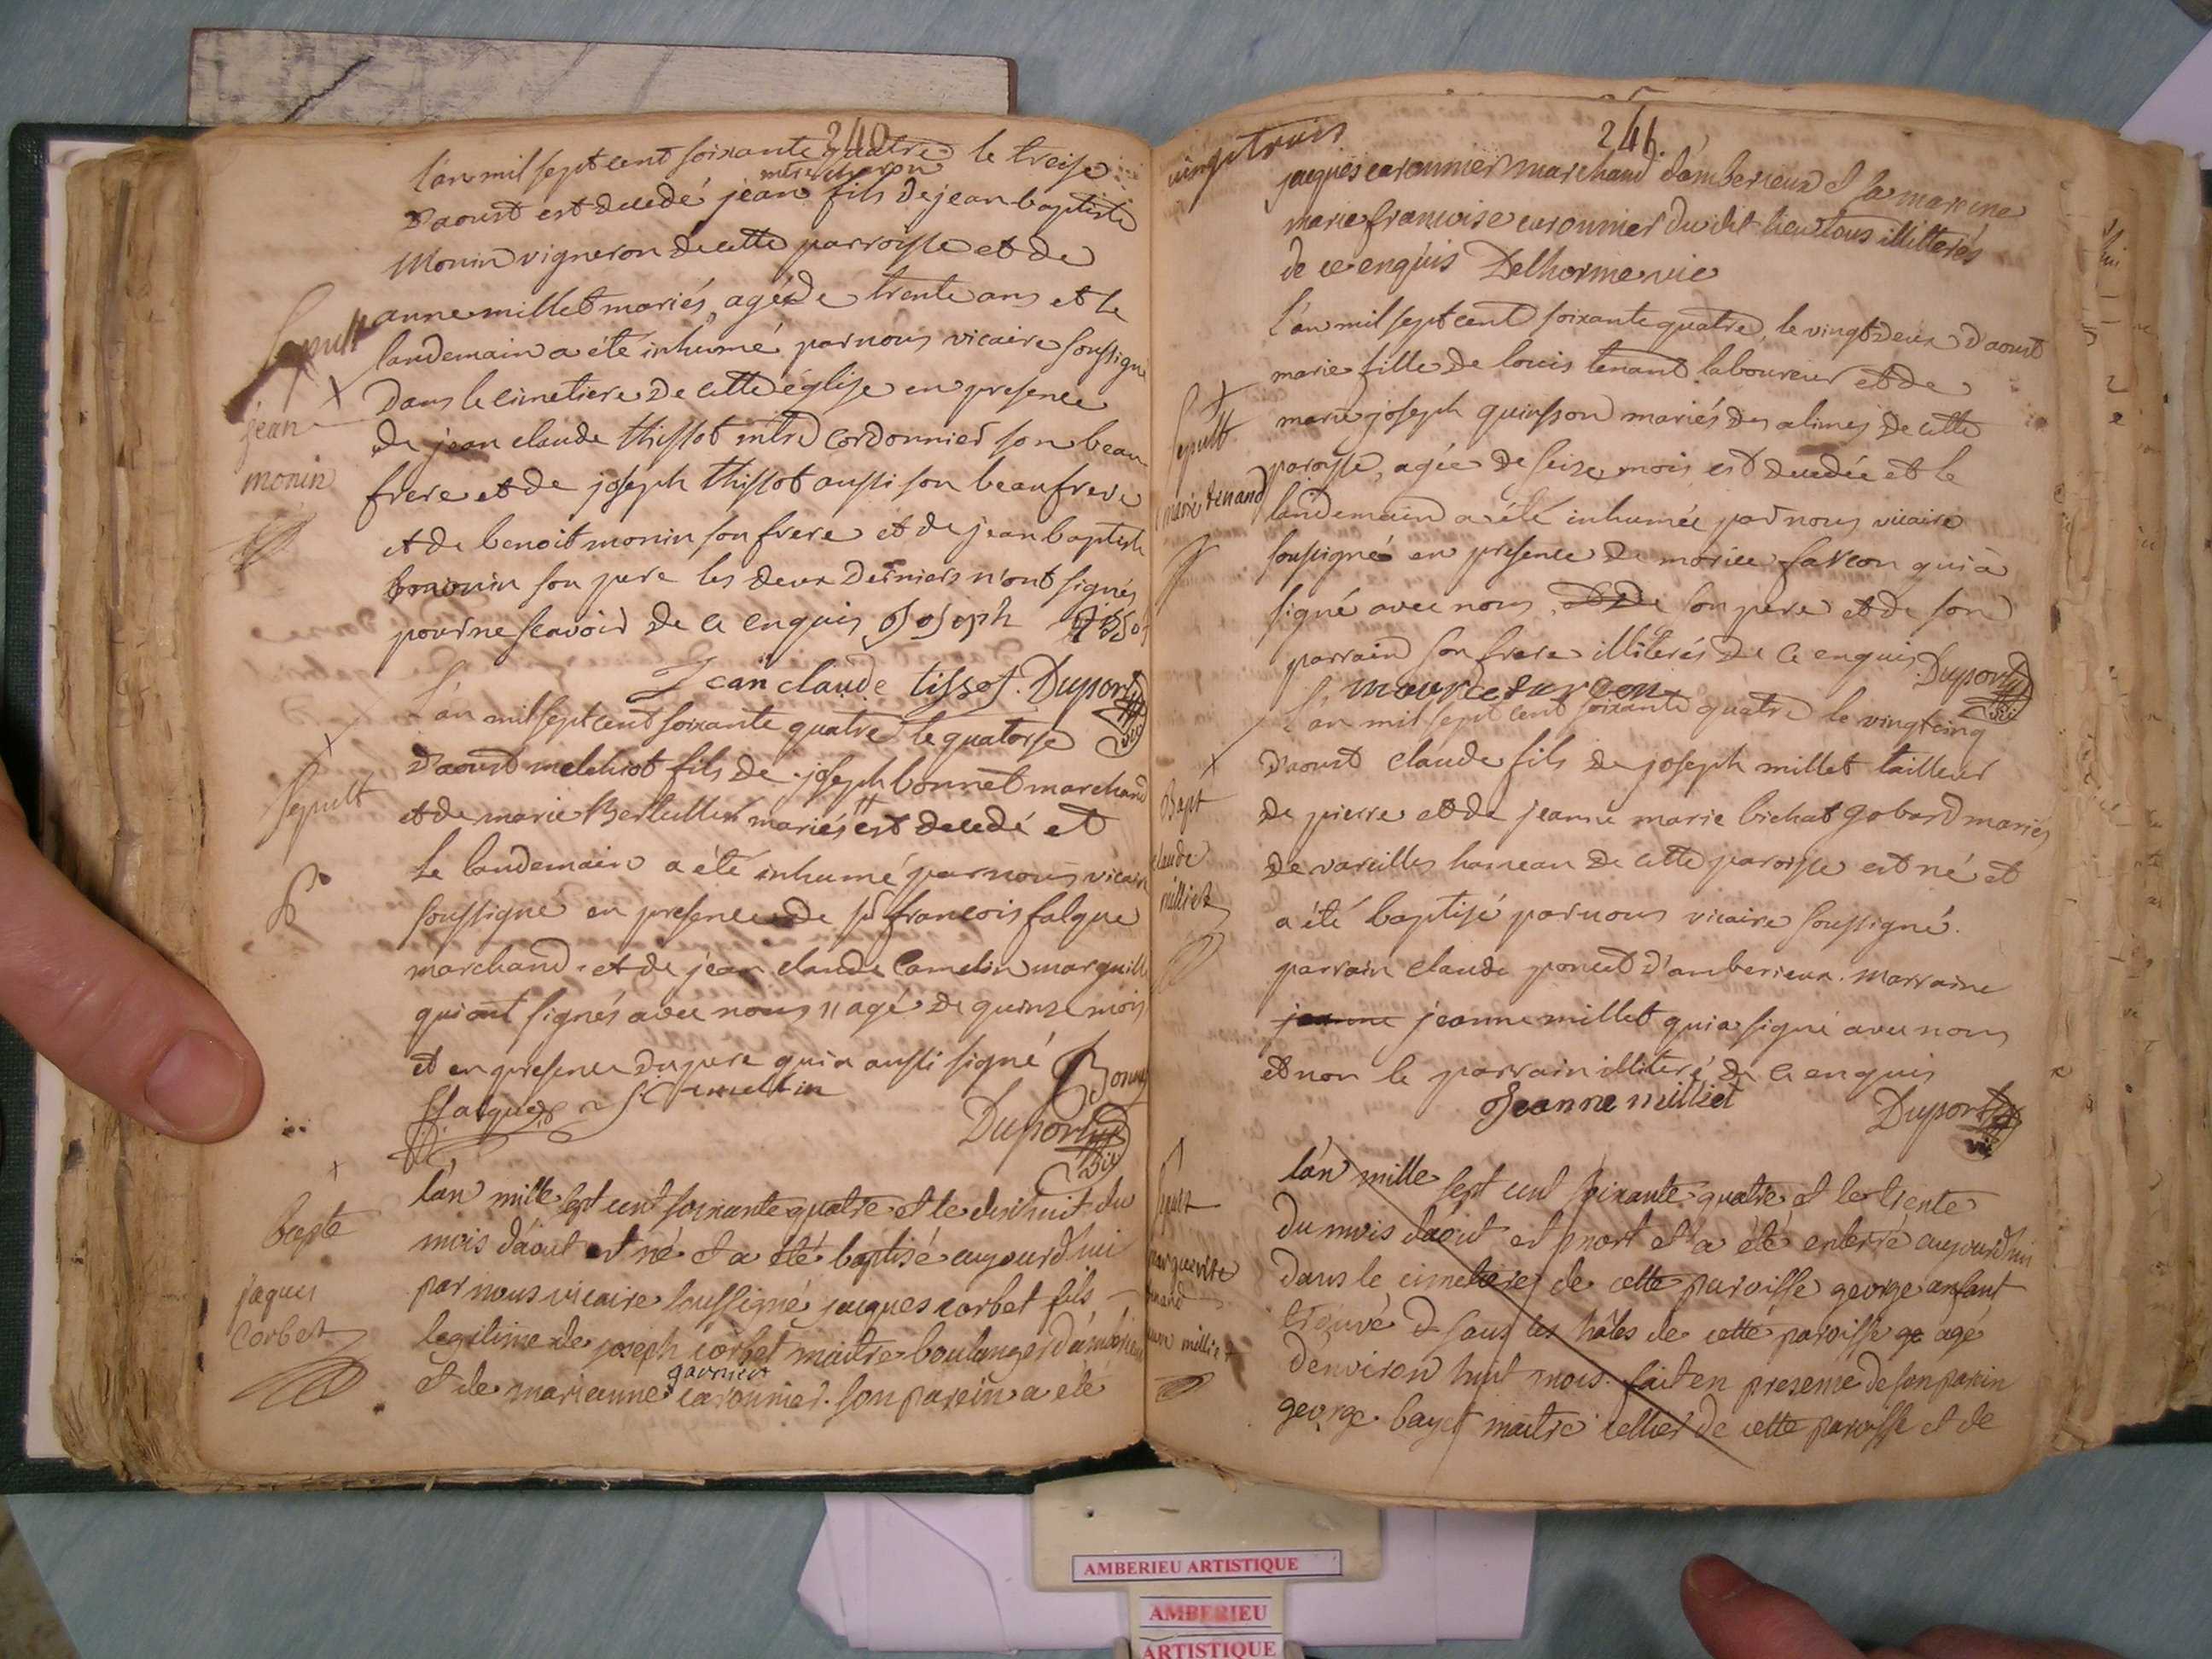 240
l'an mil sept cent soixante quatre le treise
mtre charon
d'aoust est decedé jean fils de jean baptiste
Monin vigneron de cette parroisse et de
anne millet mariés, agé de trente ans et le
landemain a été inhumé par nous vicaire soussigné
dans le cimetiere de cette église en presence
de jean claude thissot mtre cordonnier son beau
frere et de joseph thissot aussi son beaufrere
et de benoit monin son frere et de jean baptiste
monin son pere les deux derniers n'ont signés
pour ne scavoir de ce enquis Joseph tisso
Jean claude tissot. Duport
vic
Sepult
jean
monin
l'an mil sept cent soixante quatre le quatorse
d'aoust melchiot fils de joseph bonnet marchand
et de marie Berlullier mariés est decedé et
le landemain a été inhumé par nous vicaire
soussigné en presence de sr francois falque
marchand et de jean claude Camelin marguille
qui ont signés avec nous " agé de quinze mois
et en presence du pere qui a aussi signé Bonne
ffalque J C Amellin
Duport
vic
Sepult
l'an mille sept cent soixante quatre et le dixhuit du
mois d'aout est né et a été baptisé aujourd'hui
par nous vicaire soussigné jacques corbet fils
legitime de joseph corbet maitre boulanger d'amberieu
garnier
et de marianne caronnier. son parein a été
bapte
jaques
Corbet
vingt trois
241
jacques caronnier marchand d'amberieux et sa mareine
marie francoise caronnier du dit lieu tous illitterés
de ce enquis Delhorme vic
l'an mil sept cent soixante quatre, le vingtdeux d'aoust
marie fille de louis tenand laboureur et de
marie joseph quinsson mariés des alimes de cette
paroisse, agée de seize mois est decedée et le
landemain a été inhumée par nous vicaire
soussigné en presence de morice farcon qui a
signé avec nous, et de son pere et de son
parrain son frere illiterés de ce enquis Duport
maurice farcon
vic
Sepult
marie tenand
l'an mil sept cent soixante quatre le vingtcinq
d'aoust claude fils de joseph millet tailleur
de pierre et de jeanne marie bichat gobard mariés
de vareilles hameau de cette paroisse est né et
a été baptisé par nous vicaire soussigné.
parrain claude poncet d'amberieux. marraine
jeanne jeanne millet qui a signé avec nous
et non le parrain illiteré de ce enquis
Jeanne milliet Duport
vic
Bapt
claude
milliet
l'an mille sept cent soixante quatre et le trente
du mois d'aout est mort et a été enterré aujourd'hui
dans le cimetiere de cette paroisse george enfant
trouvé d sous les hâles de cette paroisse ge agé
d'environ huit mois. fait en presence de son parein
george bayet maitre sellier de cette paroisse et de
Sepult
marguerite
AMBERIEU ARTISTIQUE
AMBERIEU
ARTISTIQUE